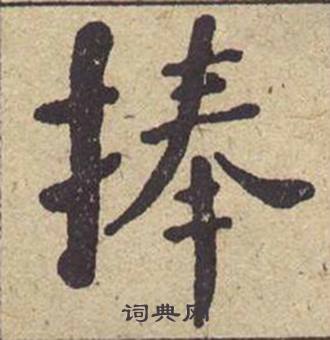 捧
词典网